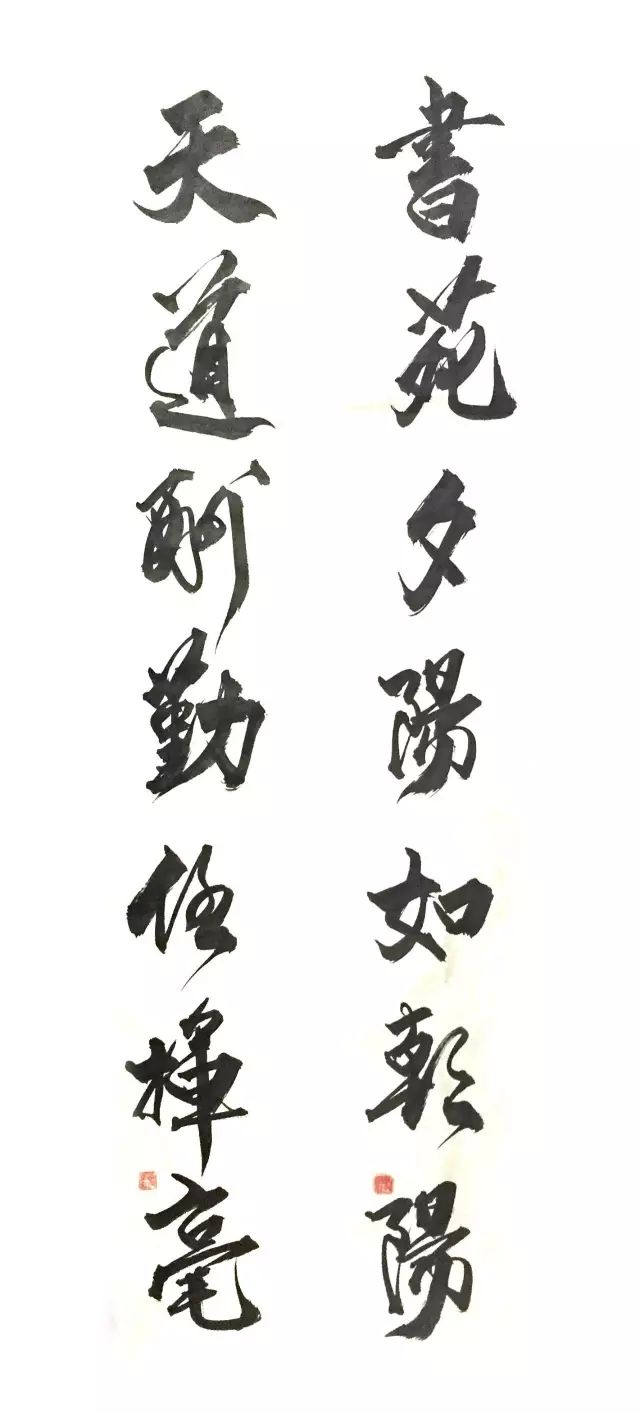 書苑夕陽如朝陽
天道酬勤任揮毫